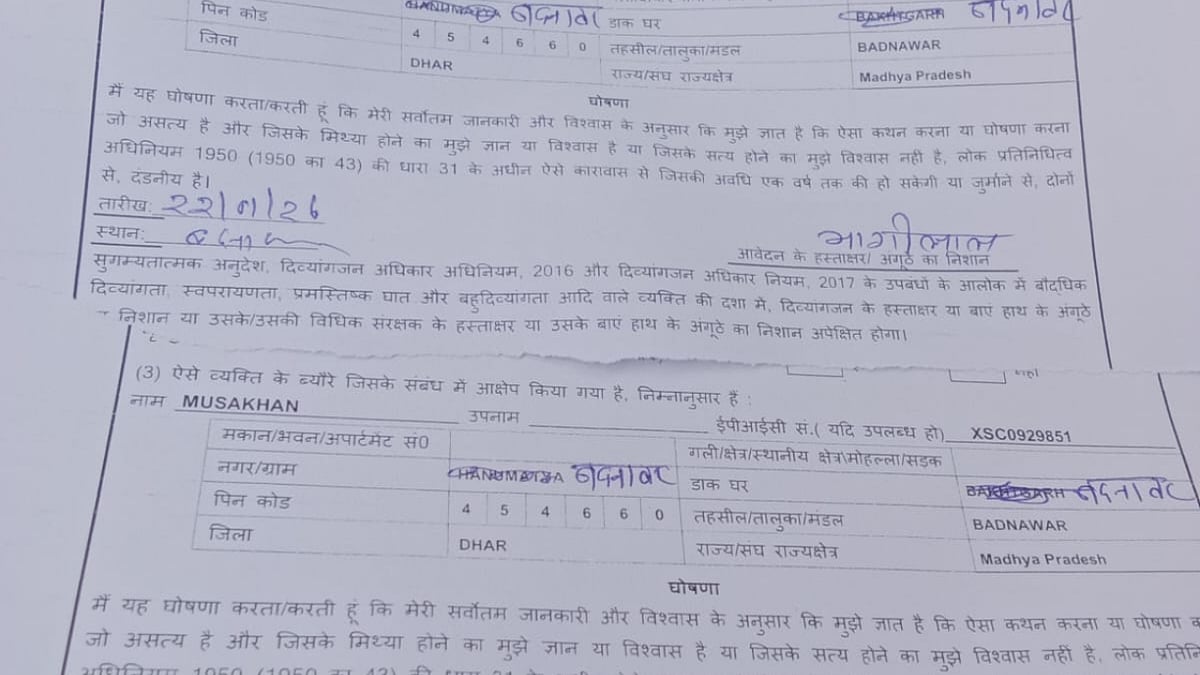 पिन कोड बदनावर डाक घर बदनावर
4 5 4 6 6 0 तहसील/तालुका/मंडल BADNAWAR
जिला DHAR राज्य/संघ राज्यक्षेत्र Madhya Pradesh
घोषणा
मैं यह घोषणा करता/करती हूं कि मेरी सर्वोतम जानकारी और विश्वास के अनुसार कि मुझे ज्ञात है कि ऐसा कथन करना या घोषणा करना
जो असत्य है और जिसके मिथ्या होने का मुझे ज्ञान या विश्वास है या जिसके सत्य होने का मुझे विश्वास नही है, लोक प्रतिनिधित्व
अधिनियम 1950 (1950 का 43) की धारा 31 के अधीन ऐसे कारावास से जिसकी अवधि एक वर्ष तक की हो सकेगी या जुर्माने से, दोनों
से, दंडनीय है।
तारीख:
स्थान:
भागीलाल
आवेदन के हस्ताक्षर/ अंगूठे का निशान
सुगम्यतात्मक अनुदेश, दिव्यांगजन अधिकार अधिनियम, 2016 और दिव्यांगजन अधिकार नियम, 2017 के उपबंधों के आलोक में बौद्धिक
दिव्यांगता, स्वपरायणता, प्रमस्तिष्क घात और बहुदिव्यांगता आदि वाले व्यक्ति की दशा में, दिव्यांगजन के हस्ताक्षर या बाएं हाथ के अंगूठे
निशान या उसके/उसकी विधिक संरक्षक के हस्ताक्षर या उसके बाएं हाथ के अंगूठे का निशान अपेक्षित होगा।
(3) ऐसे व्यक्ति के ब्यौरे जिसके संबंध में आक्षेप किया गया है, निम्नानुसार हैं :
नाम MUSAKHAN उपनाम ईपीआईसी सं.( यदि उपलब्ध हो) XSC0929851
मकान/भवन/अपार्टमेंट सं0 गली/क्षेत्र/स्थानीय क्षेत्र\मोहल्ला/सड़क
नगर/ग्राम बदनावर डाक घर बदनावर
पिन कोड 4 5 4 6 6 0 तहसील/तालुका/मंडल BADNAWAR
जिला DHAR राज्य/संघ राज्यक्षेत्र Madhya Pradesh
घोषणा
मैं यह घोषणा करता/करती हूं कि मेरी सर्वोतम जानकारी और विश्वास के अनुसार कि मुझे ज्ञात है कि ऐसा कथन करना या घोषणा
जो असत्य है और जिसके मिथ्या होने का मुझे ज्ञान या विश्वास है या जिसके सत्य होने का मुझे विश्वास नहीं है, लोक